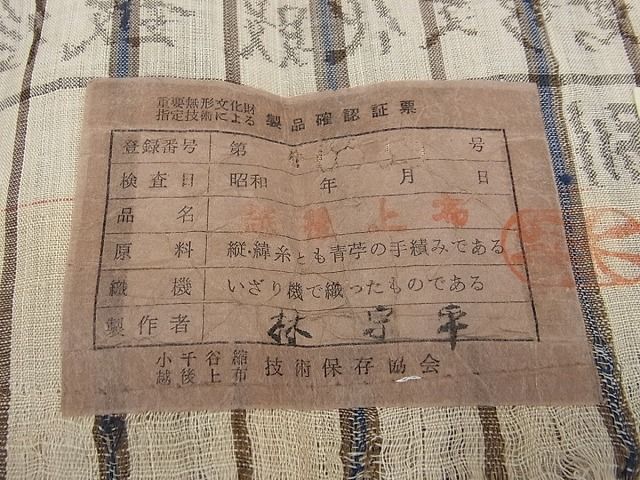 重要無形文化財
指定技術による 製品確認証票
登録番号 第 号
検査日 昭和 年 月 日
品名 越後上布
原料 縦・緯糸とも青苧の手績みである
織機 いざり機で織ったものである
製作者 林 平
小千谷縮
越後上布 技術保存協会